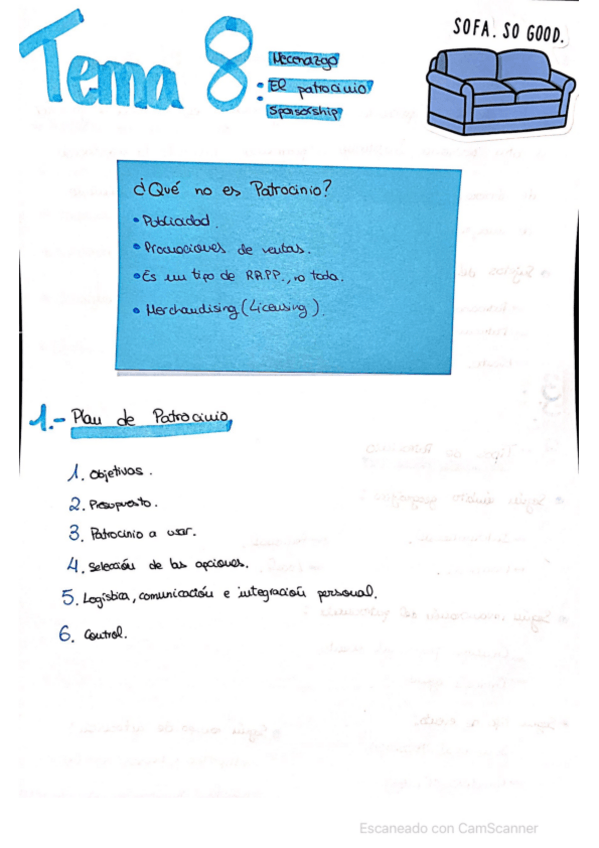 Tema 8
Mecenazgo
El patrocinio
Sponsorship
SOFA. SO GOOD.
¿Qué no es Patrocinio?
• Publicidad.
• Promociones de ventas.
• Es un tipo de RR.PP., no todo.
• Merchandising (Licensing).
1.- Plan de Patrocinio
1. Objetivos.
2. Presupuesto.
3. Patrocinio a usar.
4. Selección de las opciones.
5. Logística, comunicación e integración personal.
6. Control.
Escaneado con CamScanner